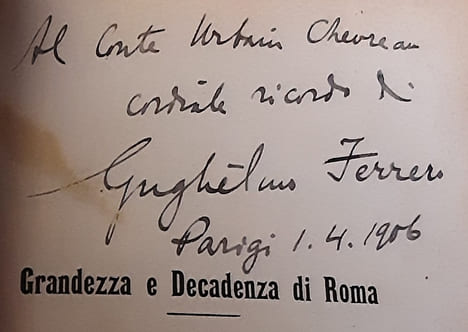 Al Conte Urbain Chevreau
cordiale ricordo di
Guglielmo Ferrero
Parigi 1.4.1906
Grandezza e Decadenza di Roma